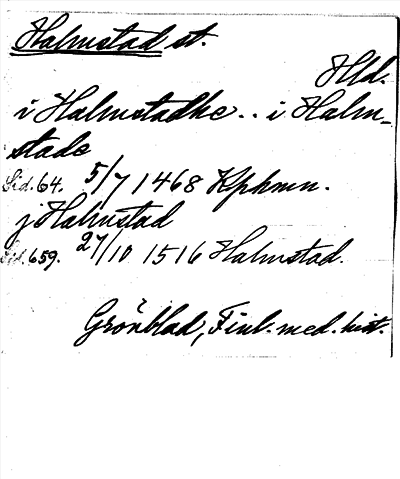 Halmstad st.
Hld.
i Halmstadhe .. i Halm-
stade
Sid. 64. 5/7 1468 Kphmn.
j Halmstad
Sid. 659. 27/10 1516 Halmstad.
Grönblad, Finl. med. hist.